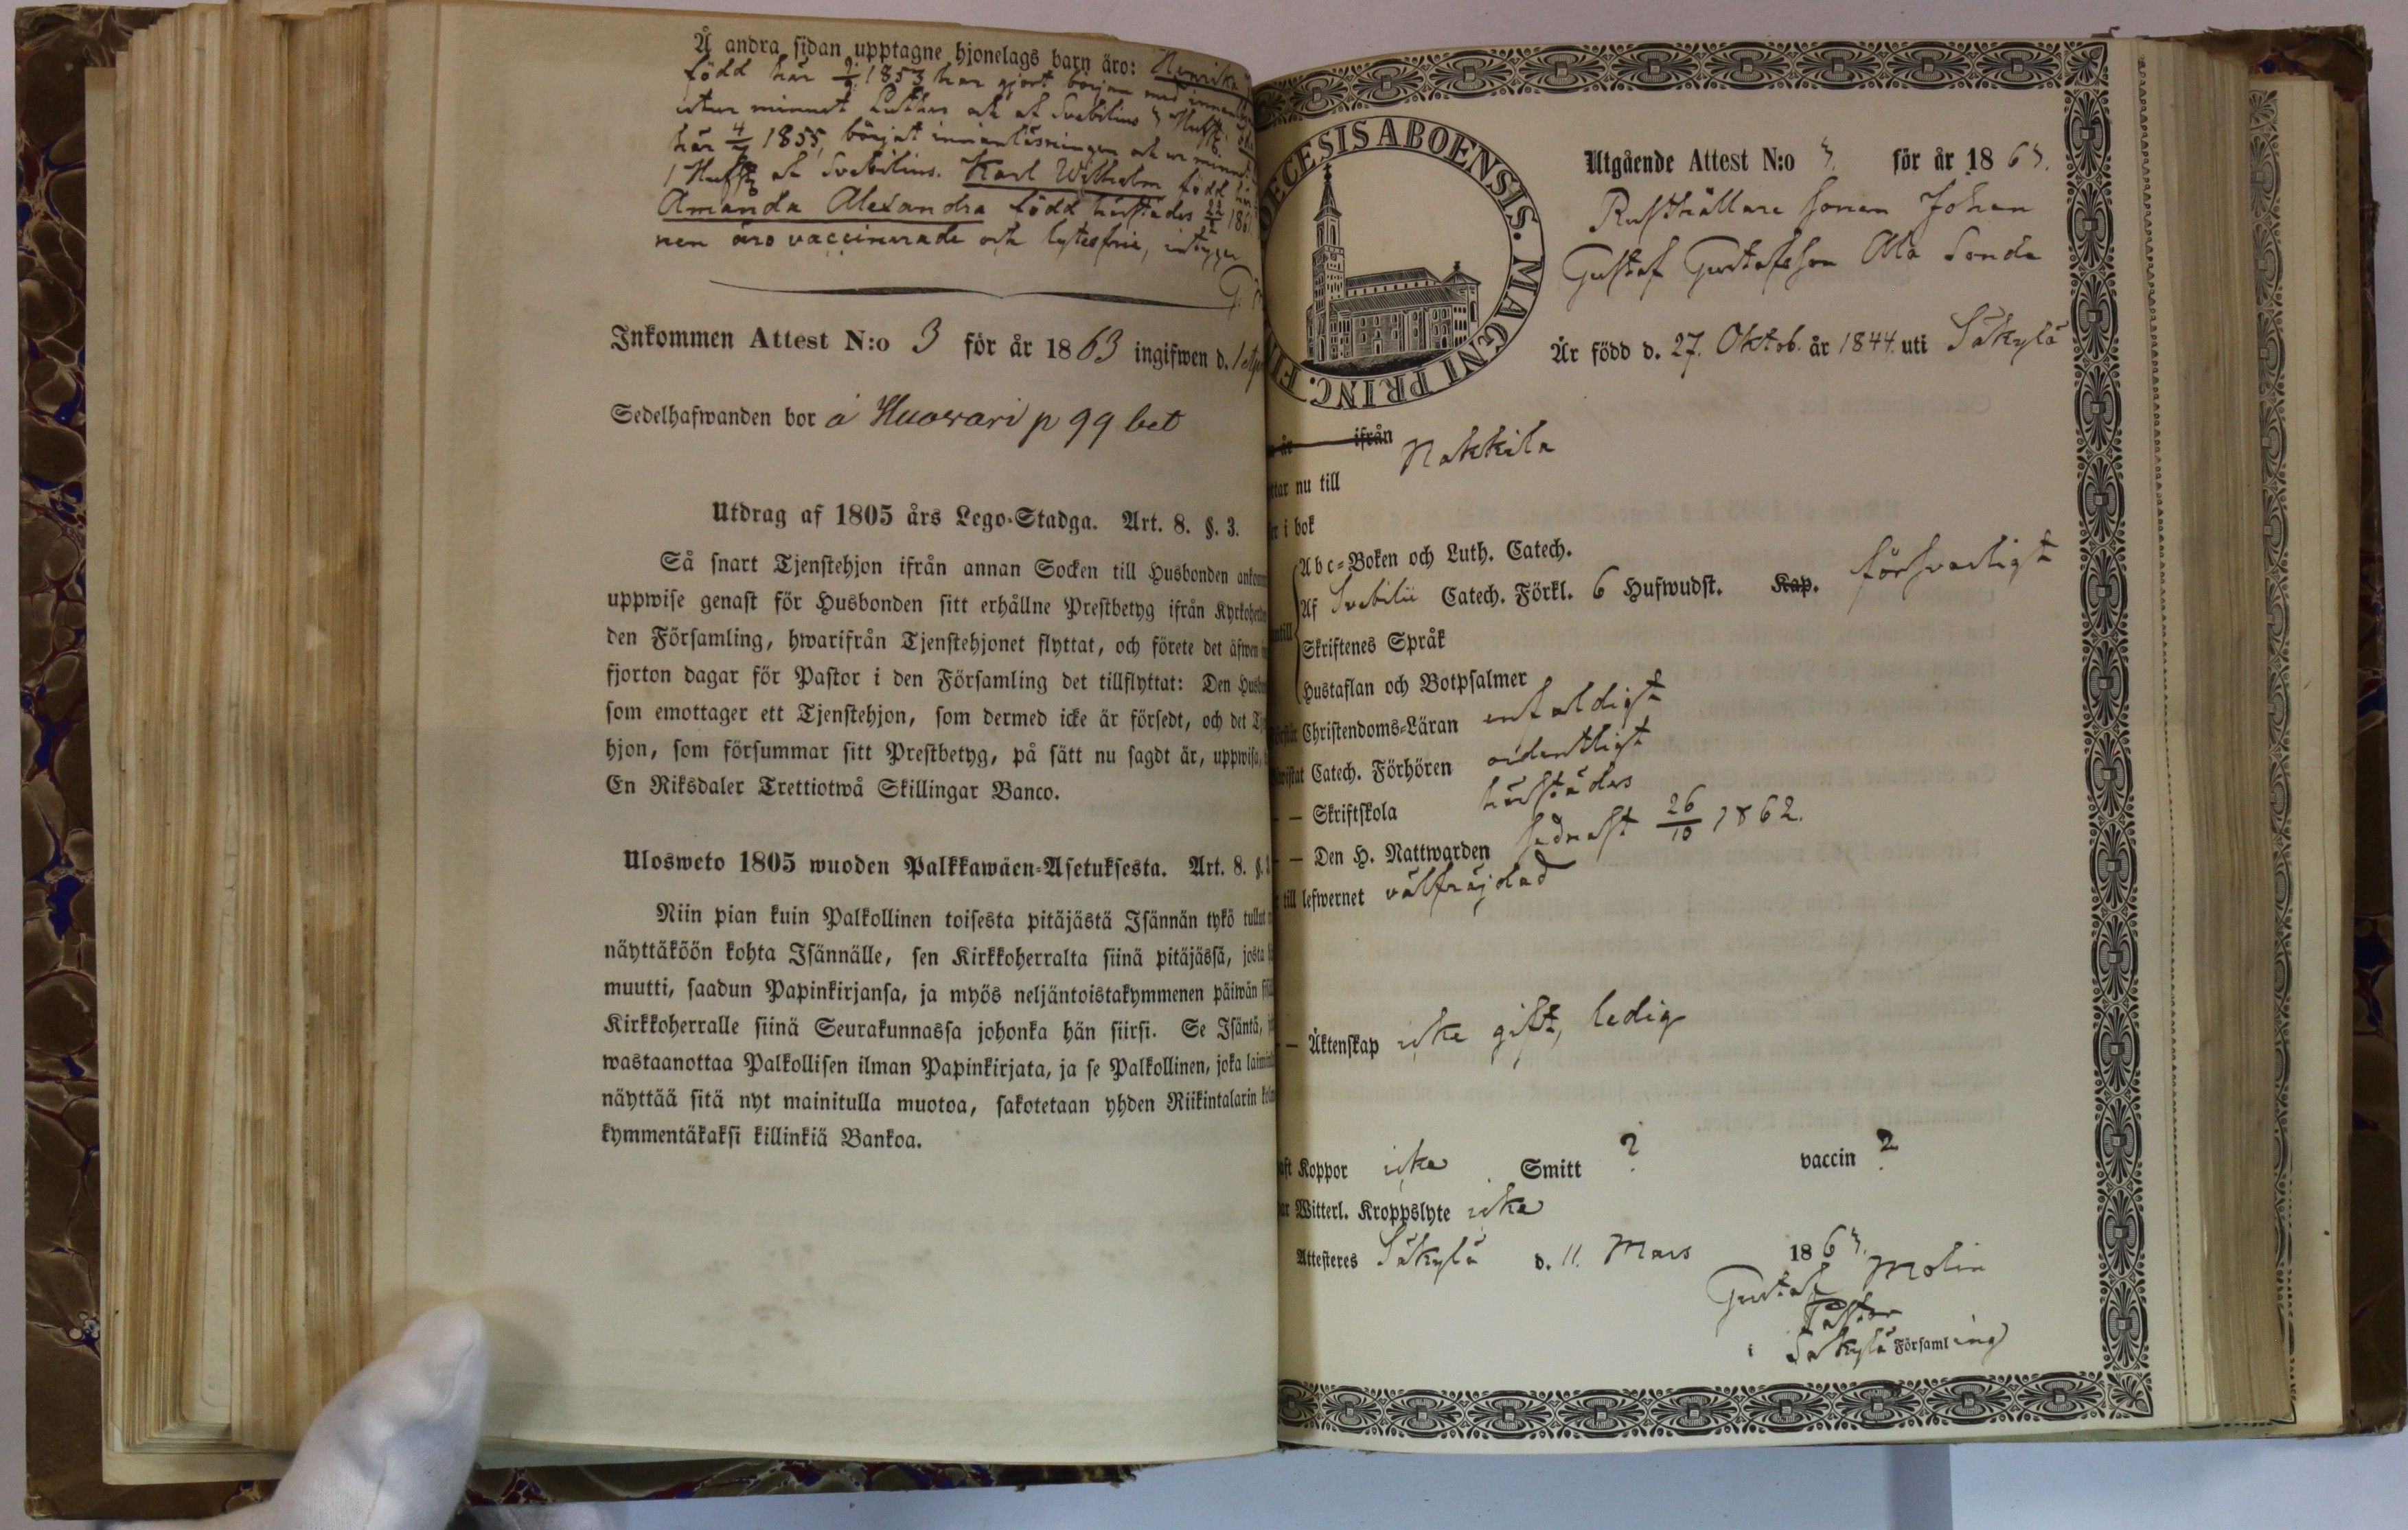 Å andra sidan upptagne hjonelags barn äro: Henrika
född här 1853 har gjort början med innan
utur minnet Luthers och af Svebilius 3 Hufst.
här 4/4 1855, börjat innanläsningen och ur minnet
1 Hufst af Svebilius. Karl Wilhelm född här
Amanda Alexandra född härstädes 22/2 186
nen äro vaccinerade och lytesfrie, intygar
G.
Inkommen Attest N:o 3 för år 1863 ingifwen d. 1 Apr
Sedelhafwanden bor å Huovari p 99 bet
Utdrag af 1805 års Lego-Stadga. Art. 8. §. 3.
Så snart Tjenstehjon ifrån annan Socken till Husbonden ankom
uppwise genast för Husbonden sitt erhållne Prestbetyg ifrån Kyrkoherde
den Församling, hwarifrån Tjenstehjonet flyttat, och förete det äfwen
fjorton dagar för Pastor i den Församling det tillflyttat: Den Husbo
som emottager ett Tjenstehjon, som dermed icke är försedt, och det Tj
hjon, som försummar sitt Prestbetyg, på sätt nu sagdt är, uppwisa,
En Riksdaler Trettiotwå Skillingar Banco.
Ulosweto 1805 wuoden Palkkawäen-Asetuksesta. Art. 8. §.
Niin pian kuin Palkollinen toisesta pitäjästä Isännän tykö tullut
näyttäköön kohta Isännälle, sen Kirkkoherralta siinä pitäjässä, josta
muutti, saadun Papinkirjansa, ja myös neljäntoistakymmenen päiwän
Kirkkoherralle siinä Seurakunnassa johonka hän siirsi. Se Isäntä,
wastaanottaa Palkollisen ilman Papinkirjata, ja se Palkollinen, joka laimi
näyttää sitä nyt mainitulla muotoa, sakotetaan yhden Riikintalarin
kymmentäkaksi killinkiä Bankoa.
ECESIS ABOENSIS. MAGNI PRINC. F
Utgående Attest N:o 3. för år 1863.
Rusthållare sonen Johan
Gustaf Gustafsson Ala Sonda
Är född d. 27. Oktob. år 1844. uti Säkylä
år ifrån
ttar nu till Nakkila
er i bok
Abc-Boken och Luth. Catech.
Af Svebilii Catech. Förkl. 6 Hufwudst. Kap. försvarligt
ntill
Skriftenes Språk
Hustaflan och Botpsalmer
Christendoms-Läran enfaldigt
wistat Catech. Förhören ordentligt
— — Skriftskola härstädes
— — Den H. Nattwarden sednast 26/10 1862.
till lefwernet välfräjdad
— — Äktenskap icke gift, ledig
aft Koppor icke Smitt ? vaccin ?
ar Witterl. Kroppslyte icke
Attesteres Säkylä d. 11. Mars 1863.
Gustaf Molin
Pastor
i Säkylä Församling